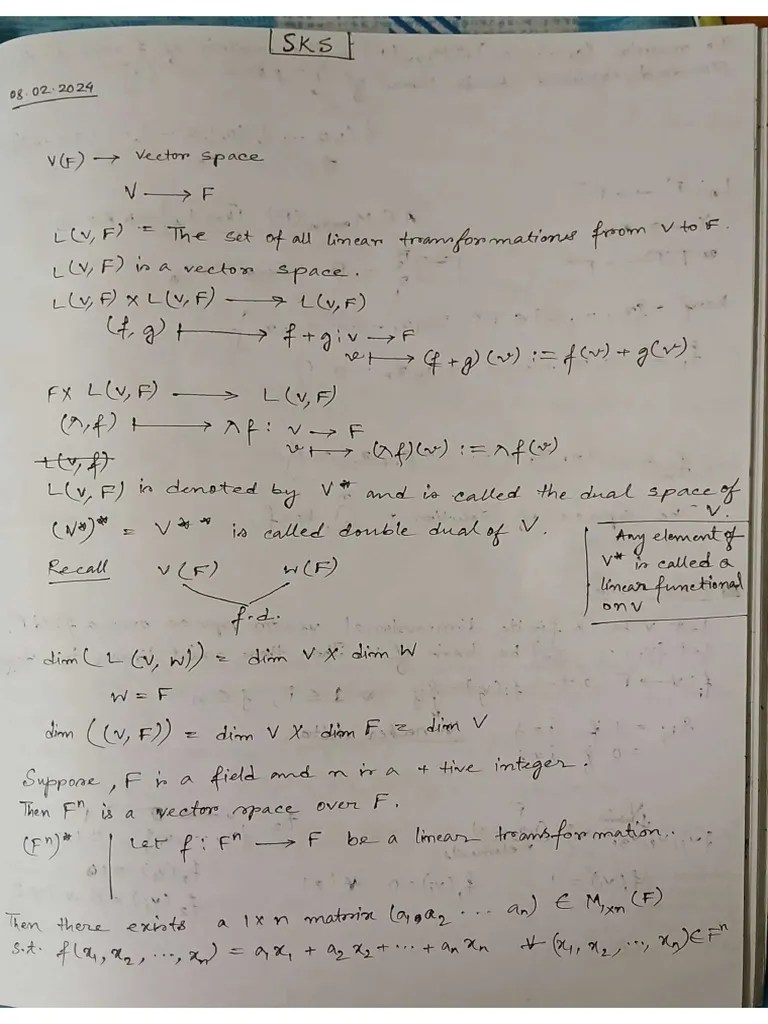 SKS
08.02.2024
V(F) → Vector space
V ⟶ F
L(V, F) = The set of all linear transformations from V to F.
L(V, F) is a vector space.
L(V, F) × L(V, F) ⟶ L(V, F)
(f, g) ⟼ f + g : V → F
v ⟼ (f + g)(v) := f(v) + g(v)
F × L(V, F) ⟶ L(V, F)
(λ, f) ⟼ λf : V → F
v ⟼ (λf)(v) := λf(v)
L(V, f)
L(V, F) is denoted by V* and is called the dual space of V.
(V*)* = V** is called double dual of V.
Any element of
V* is called a
linear functional
on V
Recall V(F) W(F)
f.d.
dim(L(V, W)) = dim V × dim W
W = F
dim((V, F)) = dim V × dim F = dim V
Suppose, F is a field and n is a + tive integer.
Then Fⁿ is a vector space over F.
(Fⁿ)* | Let f : Fⁿ ⟶ F be a linear transformation.
Then there exists a 1×n matrix (a₁, a₂ ... aₙ) ∈ M₁ₓₙ(F)
s.t. f(x₁, x₂, ..., xₙ) = a₁x₁ + a₂x₂ + ... + aₙxₙ ∀ (x₁, x₂, ..., xₙ) ∈ Fⁿ